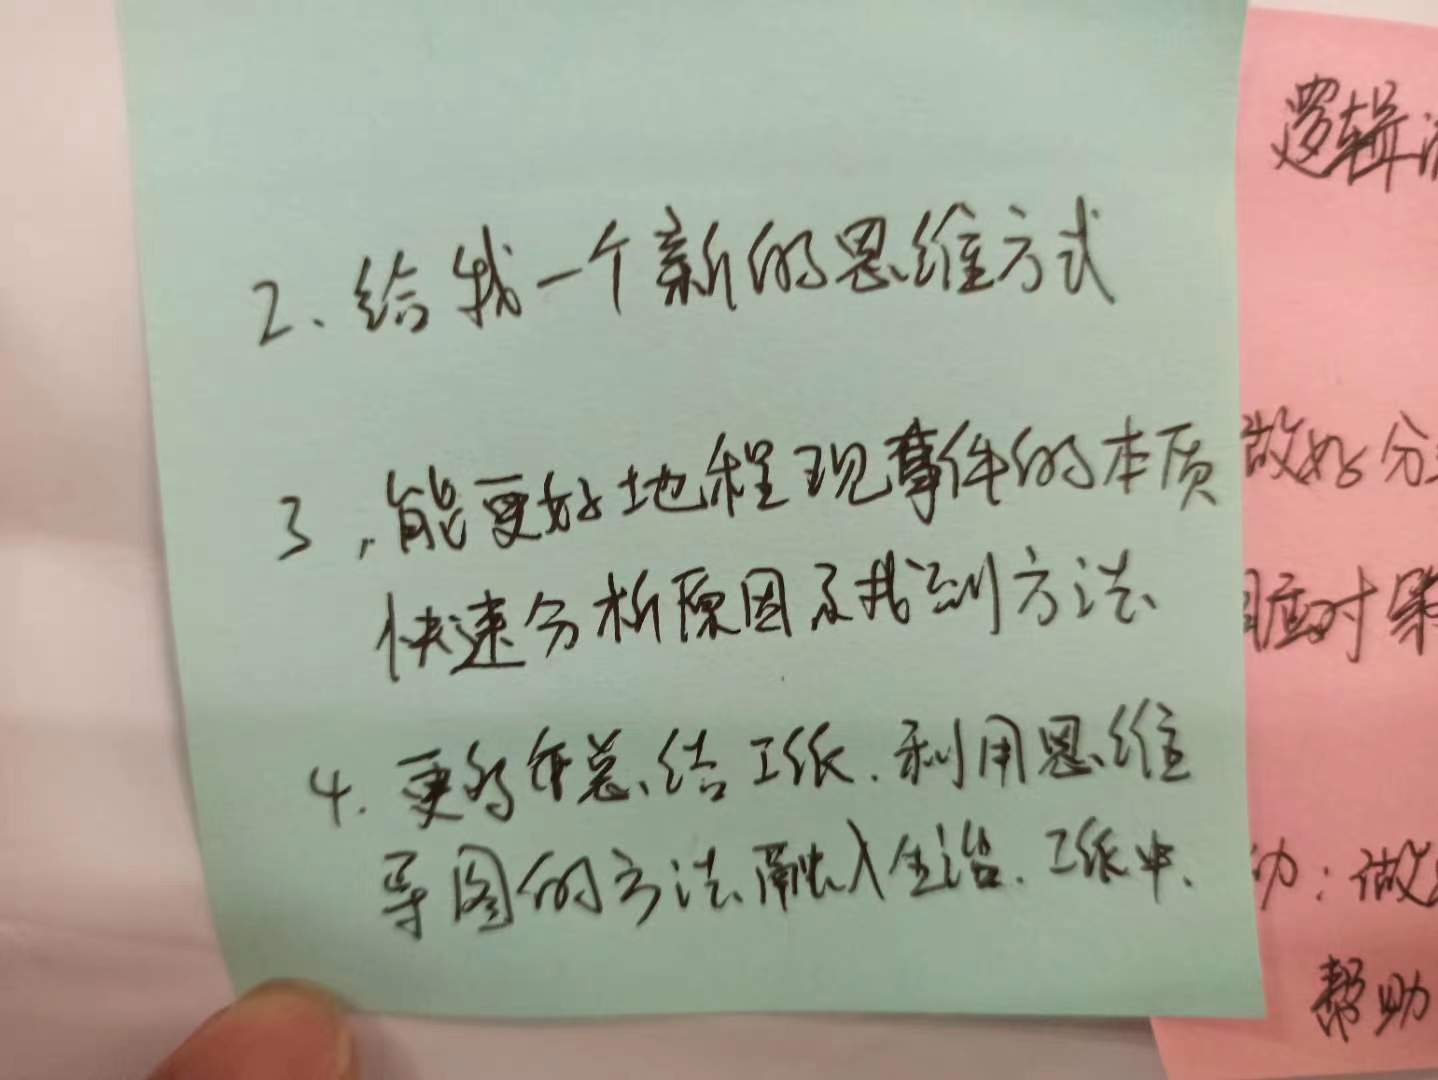 2、给我一个新的思维方式
3、能更好地程现事件的本质
快速分析原因及找到方法
4.更好
总结工
利用思维
导图的方法融入生活.工
中、
逻辑
做好分
应对
做
帮助